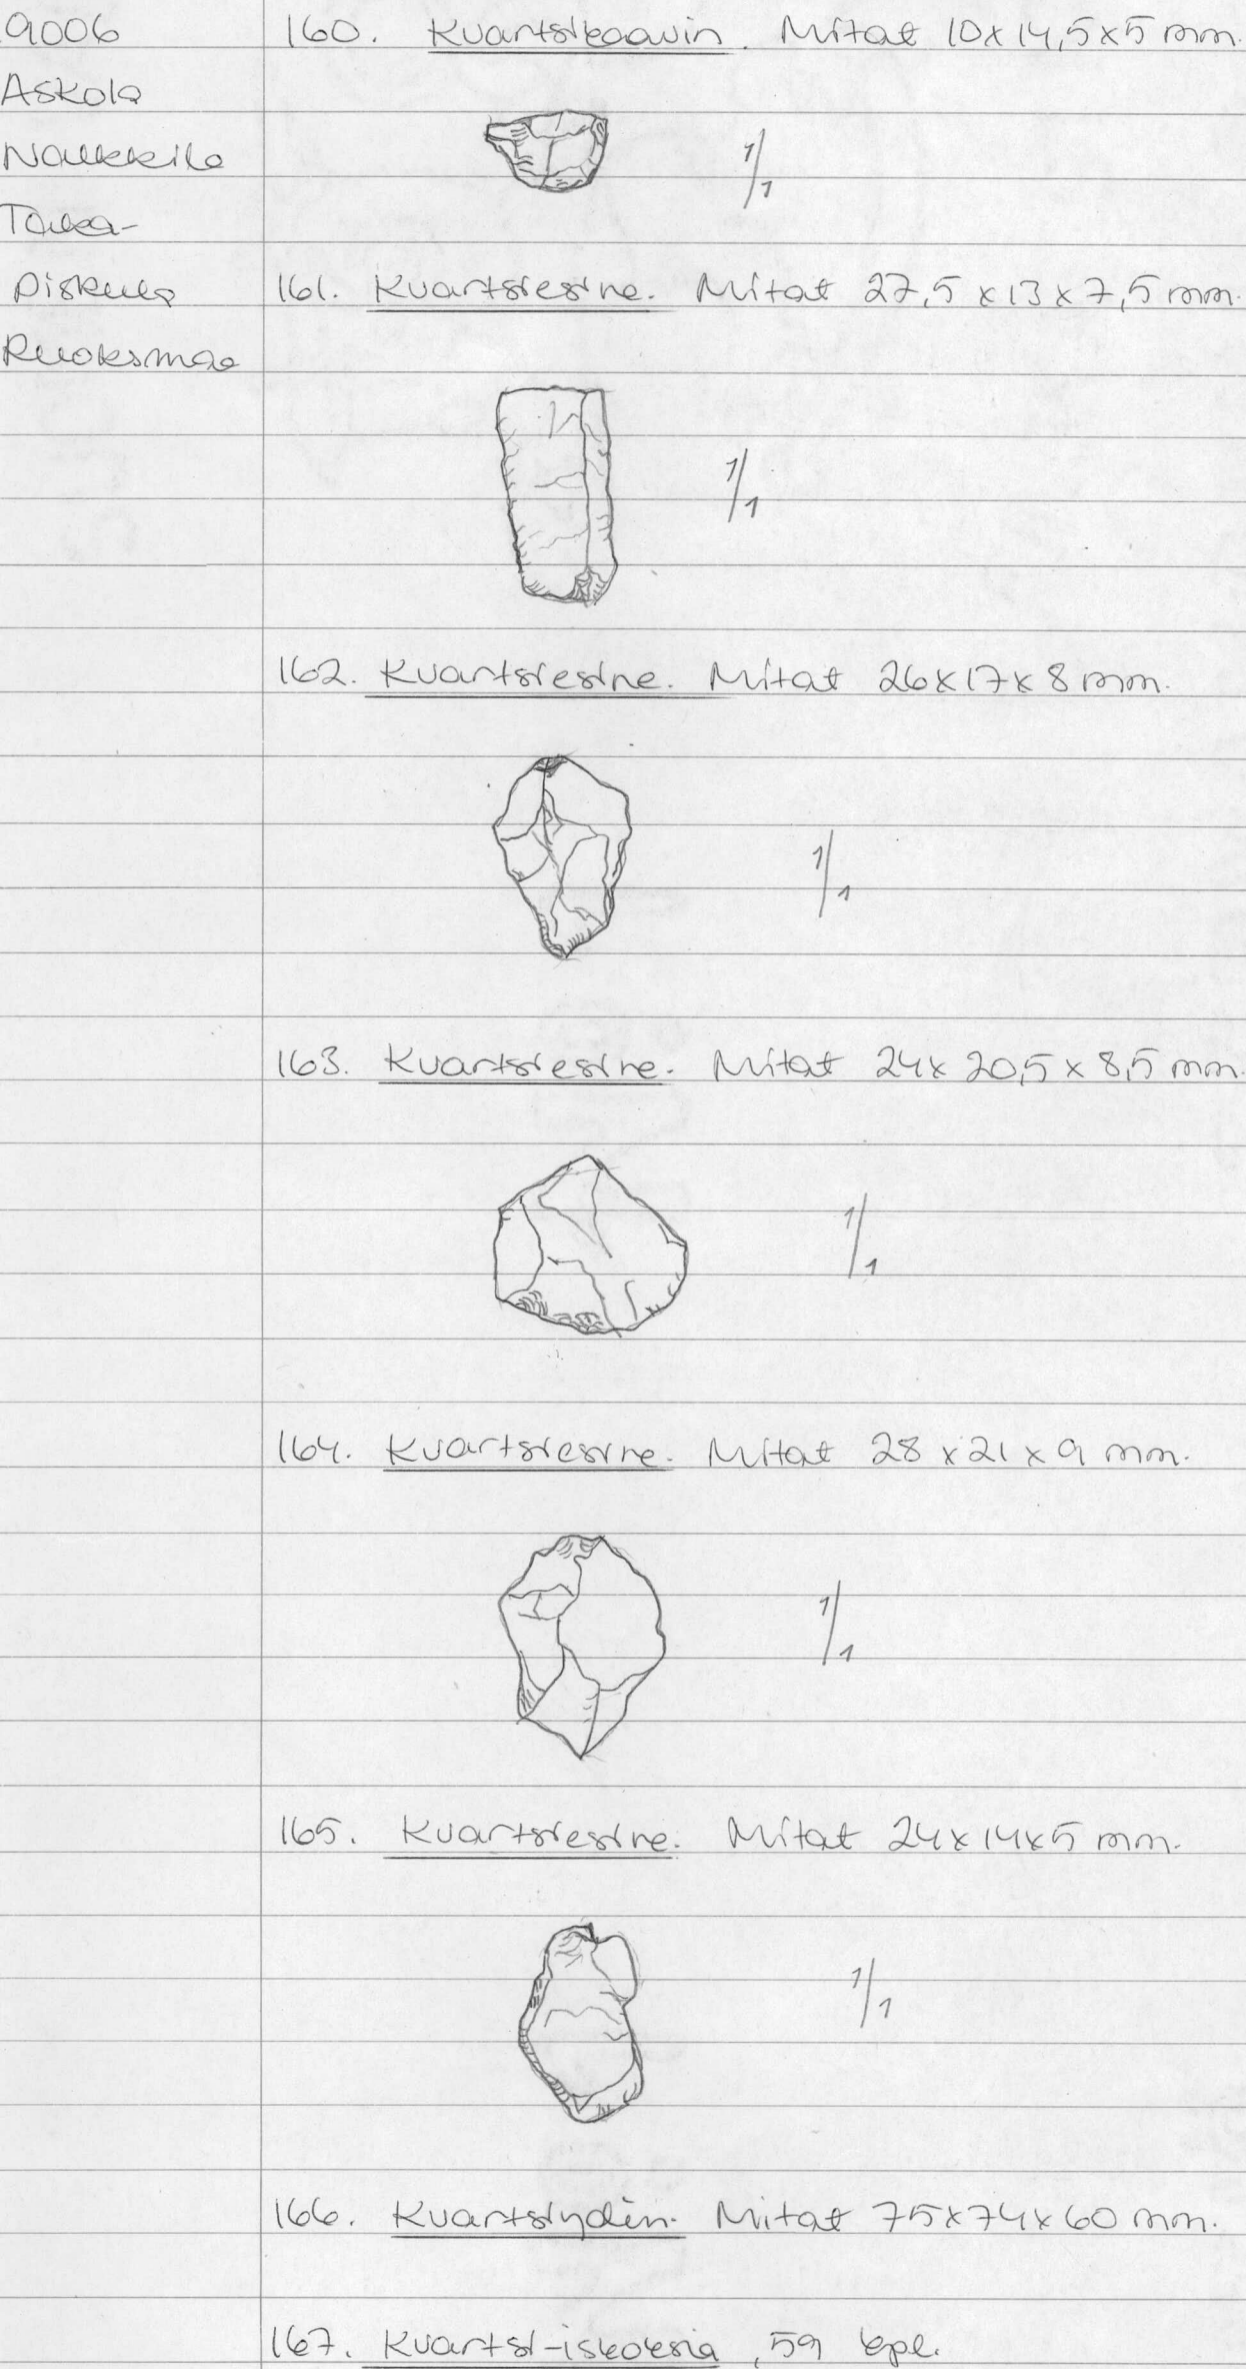 9006
Askola
Nalkkila
Taka-
Piskula
Ruoksmaa
160. Kvartsikaavin. Mitat 10x14,5x5 mm.
1/1
161. Kvartsiesine. Mitat 27,5 x 13 x 7,5 mm.
1/1
162. Kvartsiesine. Mitat 26x17x8 mm.
1/1
163. Kvartsiesine. Mitat 24x 20,5 x 8,5 mm.
1/1
164. Kvartsiesine. Mitat 28 x 21 x 9 mm.
1/1
165. Kvartsiesine. Mitat 24x14x5 mm.
1/1
166. Kvartsiydin. Mitat 75x74x60 mm.
167. Kvartsi-iskoksia, 59 kpl.